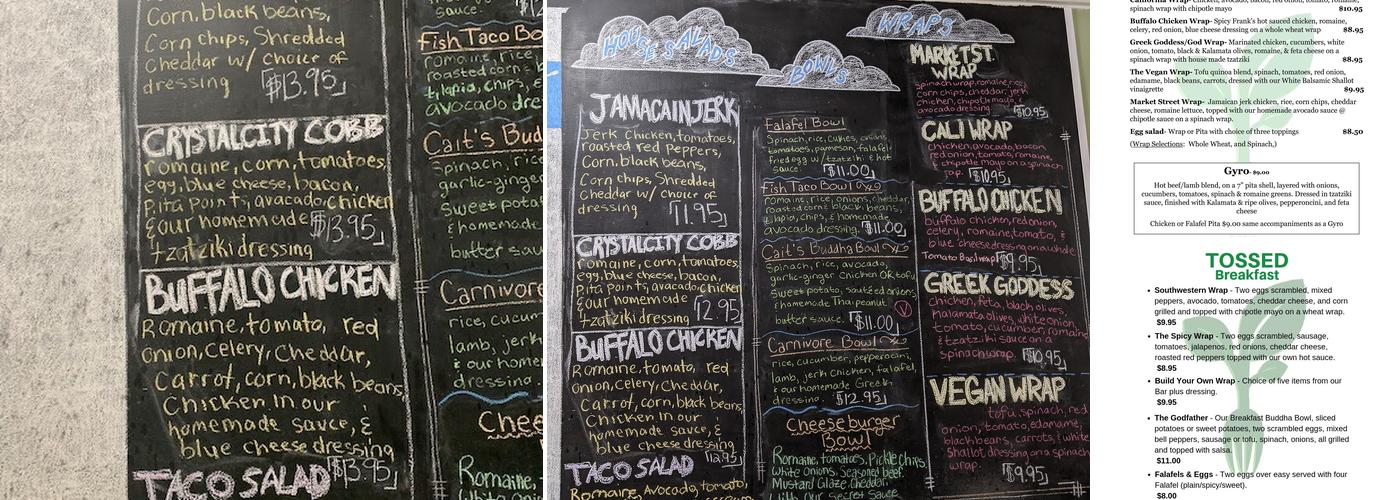 Corn, black beans,
Corn chips, Shredded
Cheddar w/ choice of
dressing $13.95
CRYSTALCITY COBB
romaine, corn, tomatoes,
egg, blue cheese, bacon,
Pita Points, avacado, chicken
& our homemade $13.95
tzatziki dressing
BUFFALO CHICKEN
Romaine, tomato, red
onion, celery, cheddar,
Carrot, corn, black beans,
Chicken in our
homemade sauce, &
blue cheese dressing
$13.95
TACO SALAD
sauce.
Fish Taco Bo
romaine,
roasted corn &
tilapia, chips, &
avocado dre
Cait's Bud
Spinach, rice
garlic-ginger
Sweet potat
& homemade
butter sau
Carnivore
rice, cucum
lamb, jerk
& our homem
dressing.
Chee
Romaine,
HOUSE SALADS
JAMACAIN JERK
Jerk Chicken, tomatoes,
roasted red Peppers,
Corn, black beans,
Corn chips, Shredded
Cheddar w/ choice of
dressing 11.95
CRYSTALCITY COBB
romaine, corn, tomatoes,
egg, blue cheese, bacon,
Pita Points, avacado, chicken
& our homemade 12.95
tzatziki dressing
BUFFALO CHICKEN
Romaine, tomato, red
onion, celery, cheddar,
Carrot, corn, black beans,
Chicken in our
homemade sauce, &
blue cheese dressing
12.95
TACO SALAD
Romaine, Avocado, tomato,
BOWLS
Falafel Bowl
Spinach, rice, cukies, onions
tomatoes, parmesan, falafel
fried egg w/ tzatziki & hot
sauce. $11.00
Fish Taco Bowl
romaine, rice, onions, cheddar,
roasted corn & black beans,
tilapia, chips, & homemade
avocado dressing. $11.00
Cait's Buddha Bowl
Spinach, rice, avocado,
garlic-ginger Chicken OR tofu
Sweet potato, sautéed onions,
& homemade Thai peanut V
butter sauce. $11.00
Carnivore Bowl
rice, cucumber, pepperoncini,
lamb, jerk chicken, falafel,
& our homemade Greek
dressing. $12.95
Cheeseburger
Bowl
Romaine, tomatoes, Pickle chips,
White onions, Seasoned beef,
Mustard Glaze, Cheddar,
With Our Secret Sauce
WRAPS
MARKET ST.
WRAP
spinach wrap, romaine, rice
corn chips, cheddar, jerk
chicken, chipotle mayo &
avocado dressing. $10.95
CALI WRAP
chicken, avocado, bacon
red onion, tomato, romaine,
& chipotle mayo on a spinach
$10.95
BUFFALO CHICKEN
buffalo chicken, red onion,
celery, romaine, tomato, &
blue cheese dressing on a whole
$9.95
GREEK GODDESS
chicken, feta, black olives,
kalamata olives, white onion,
tomato, cucumber, romaine
& tzatziki sauce on a
spinach wrap. $10.95
VEGAN WRAP
tofu, spinach, red
onion, tomato, edamame,
black beans, carrots, & white
shallot dressing on a spinach
wrap. $9.95
California Wrap- Chicken, avocado, bacon, red onion, tomato, romaine,
spinach wrap with chipotle mayo $10.95
Buffalo Chicken Wrap- Spicy Frank's hot sauced chicken, romaine,
celery, red onion, blue cheese dressing on a whole wheat wrap $8.95
Greek Goddess/God Wrap- Marinated chicken, cucumbers, white
onion, tomato, black & Kalamata olives, romaine, & feta cheese on a
spinach wrap with house made tzatziki $8.95
The Vegan Wrap- Tofu quinoa blend, spinach, tomatoes, red onion,
edamame, black beans, carrots, dressed with our White Balsamic Shallot
vinaigrette $9.95
Market Street Wrap- Jamaican jerk chicken, rice, corn chips, cheddar
cheese, romaine lettuce, topped with our homemade avocado sauce @
chipotle sauce on a spinach wrap.
Egg salad- Wrap or Pita with choice of three toppings $8.50
(Wrap Selections: Whole Wheat, and Spinach,)
Gyro- $9.00
Hot beef/lamb blend, on a 7" pita shell, layered with onions,
cucumbers, tomatoes, spinach & romaine greens. Dressed in tzatziki
sauce, finished with Kalamata & ripe olives, pepperoncini, and feta
cheese
Chicken or Falafel Pita $9.00 same accompaniments as a Gyro
TOSSED
Breakfast
• Southwestern Wrap - Two eggs scrambled, mixed
peppers, avocado, tomatoes, cheddar cheese, and corn
grilled and topped with chipotle mayo on a wheat wrap.
$9.95
• The Spicy Wrap - Two eggs scrambled, sausage,
tomatoes, jalapenos, red onions, cheddar cheese,
roasted red peppers topped with our own hot sauce.
$8.95
• Build Your Own Wrap - Choice of five items from our
Bar plus dressing.
$9.95
• The Godfather - Our Breakfast Buddha Bowl, sliced
potatoes or sweet potatoes, two scrambled eggs, mixed
bell peppers, sausage or tofu, spinach, onions, all grilled
and topped with salsa.
$11.00
• Falafels & Eggs - Two eggs over easy served with four
Falafel (plain/spicy/sweet).
$8.00